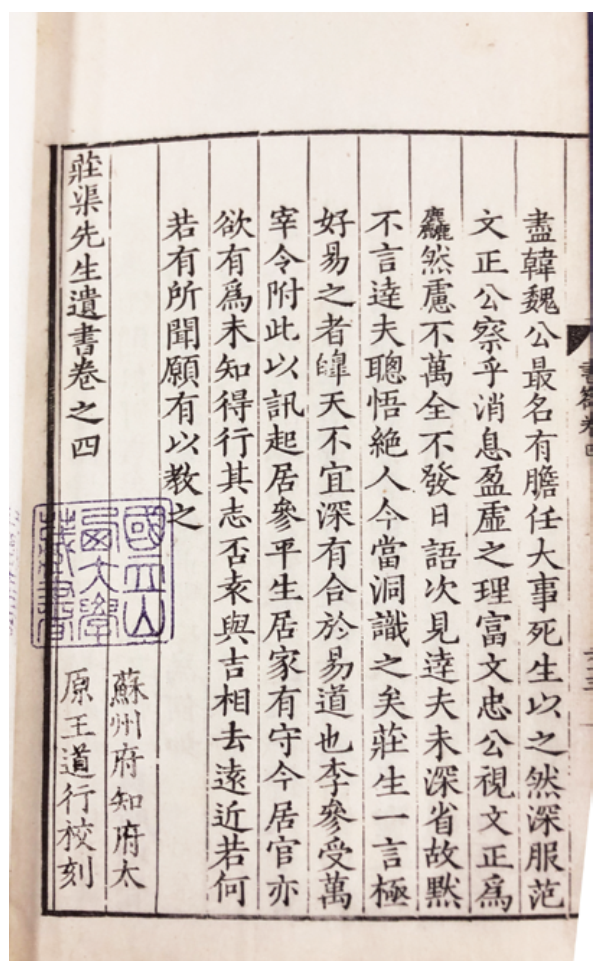 盡韓魏公最名有膽任大事死生以之然深服范
文正公察乎消息盈虛之理富文忠公視文正爲
麤然慮不萬全不發日語次見逹夫未深省故黙
不言逹夫聰悟絶人今當洞識之矣莊生一言極
好易之者皥天不宜深有合於易道也李參受萬
宰令附此以訊起居參平生居家有守今居官亦
欲有爲未知得行其志否袁與吉相去遠近若何
若有所聞願有以教之
蘇州府知府太
原王道行校刻
莊渠先生遺書卷之四
國立山
西大學
藏書